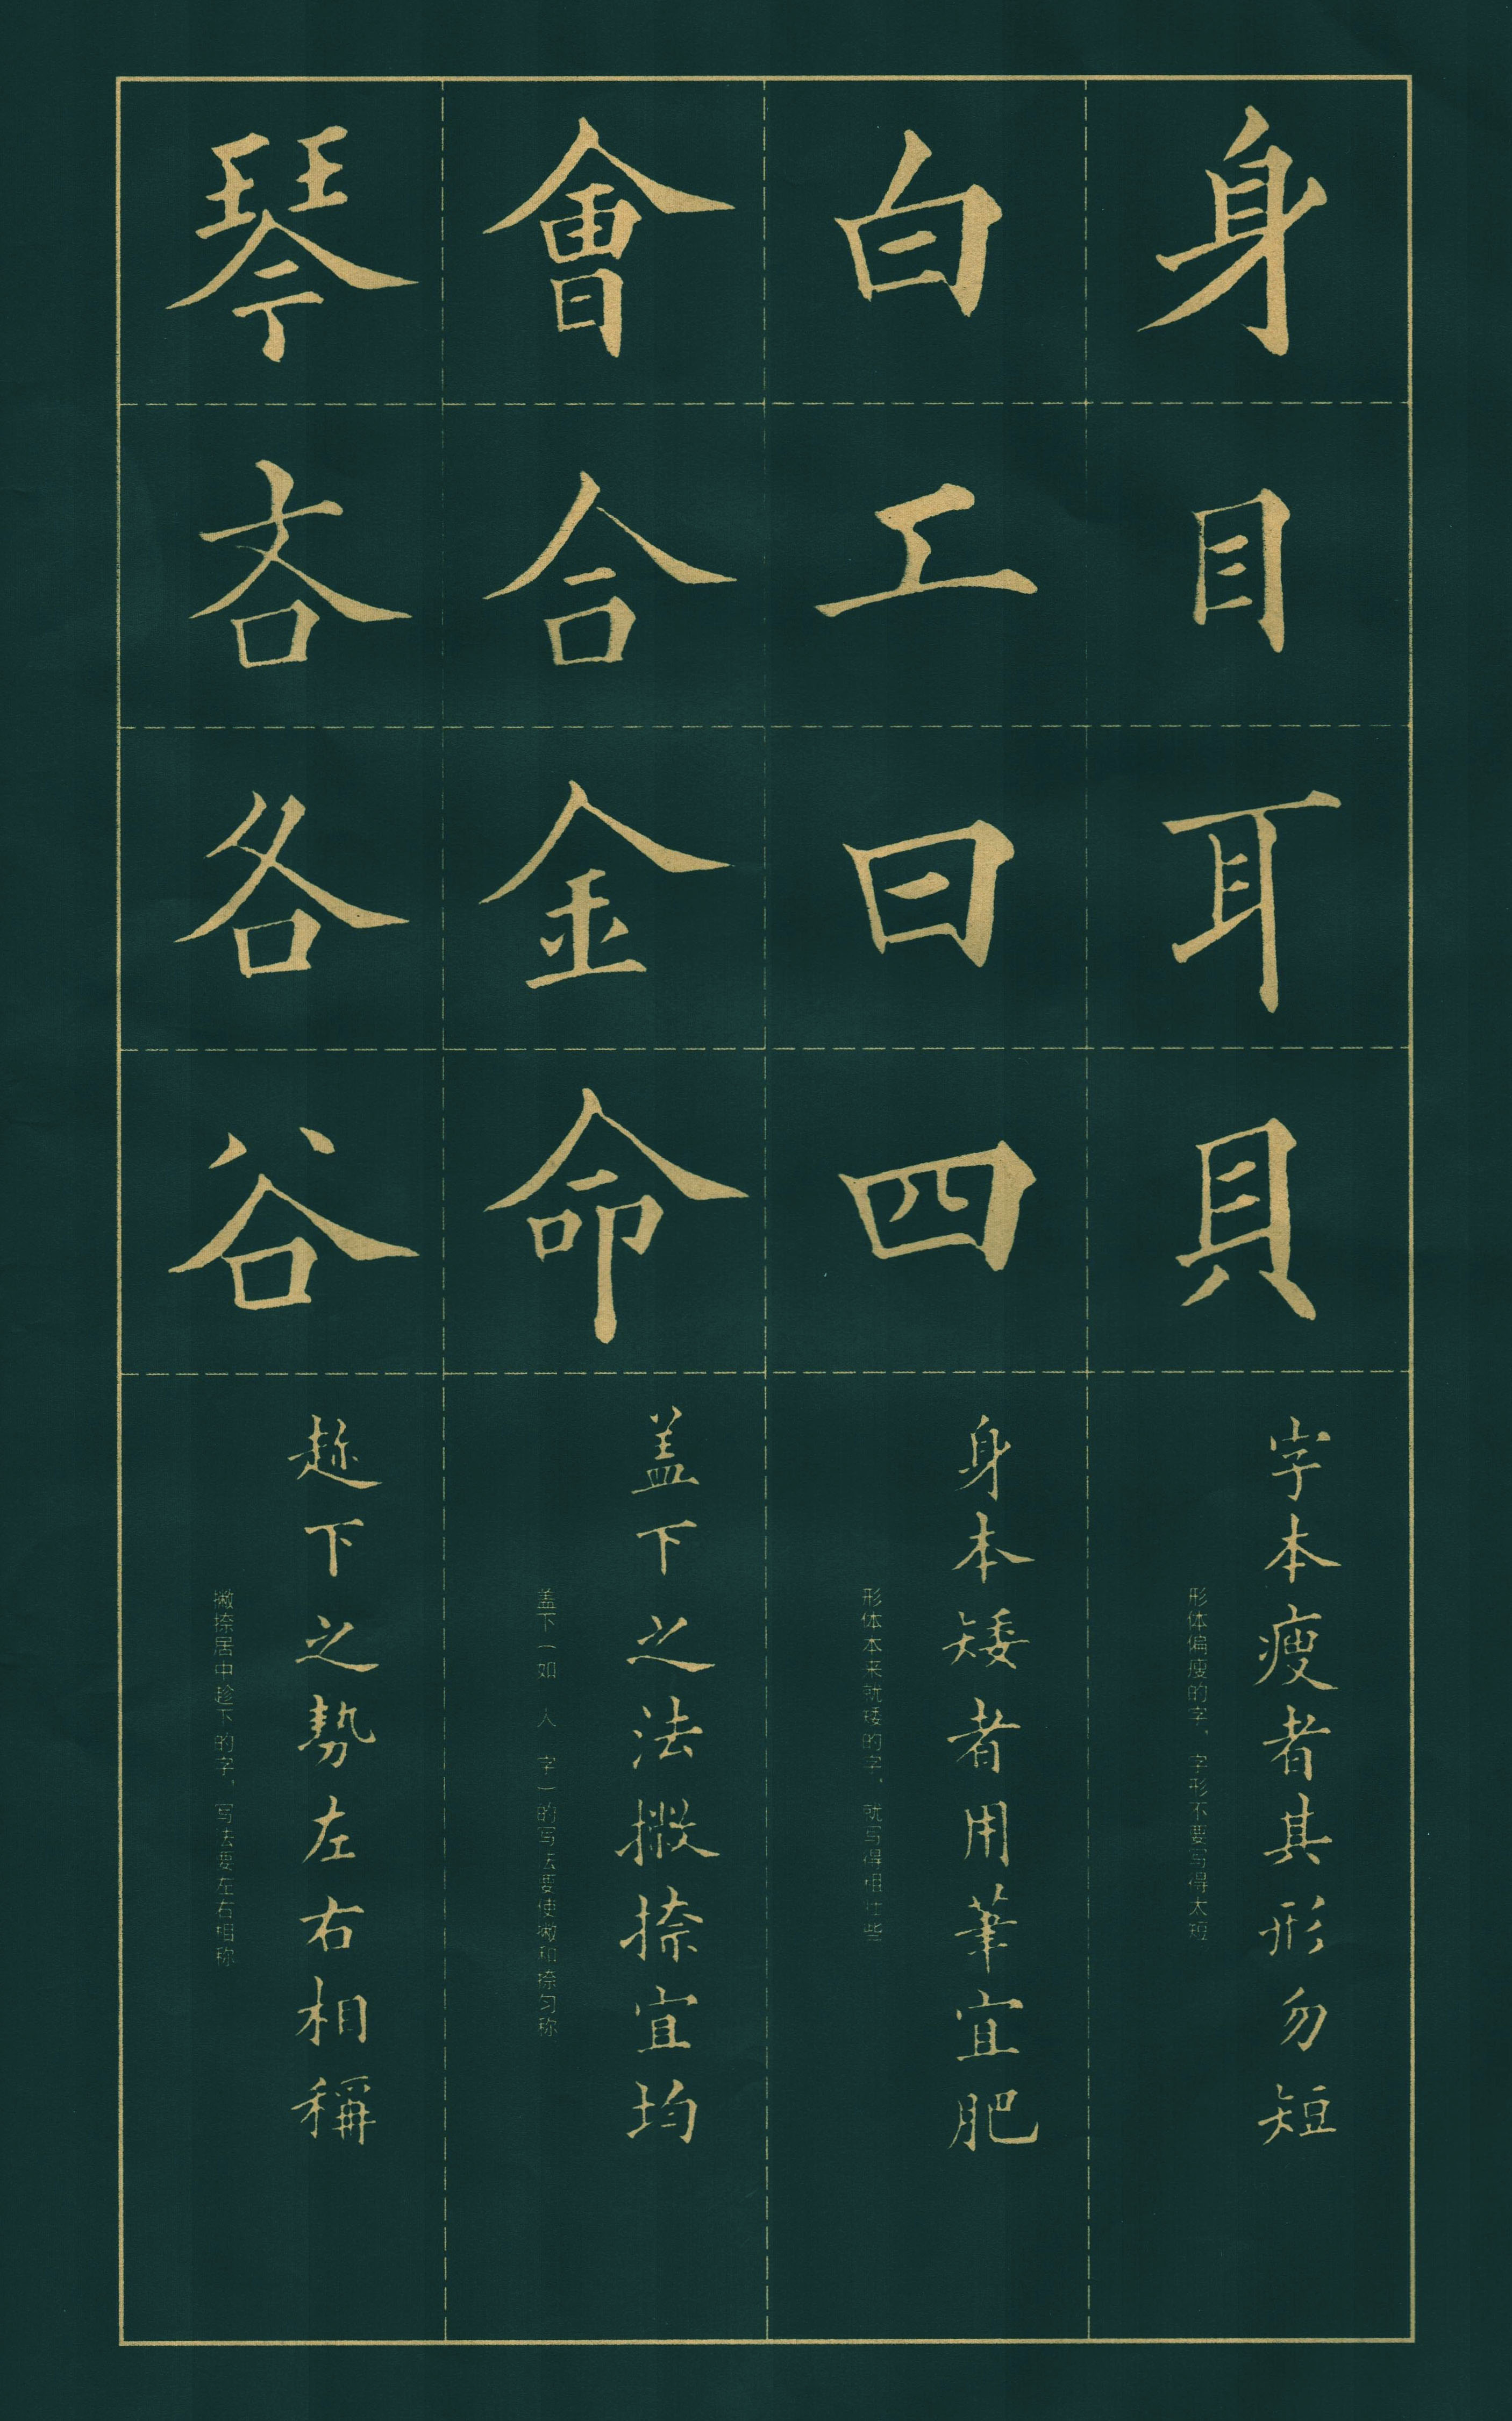 身目耳貝
字本瘦者其形勿短
形体偏瘦的字，字形不要写得太短
白工曰四
身本矮者用筆宜肥
形体本来就矮的字，就写得粗壮些
會合金命
盖下之法撇捺宜均
盖下（如 人 字）的写法要使撇和捺匀称
琴吝各谷
趂下之勢左右相稱
撇捺居中趁下的字，写法要左右相称